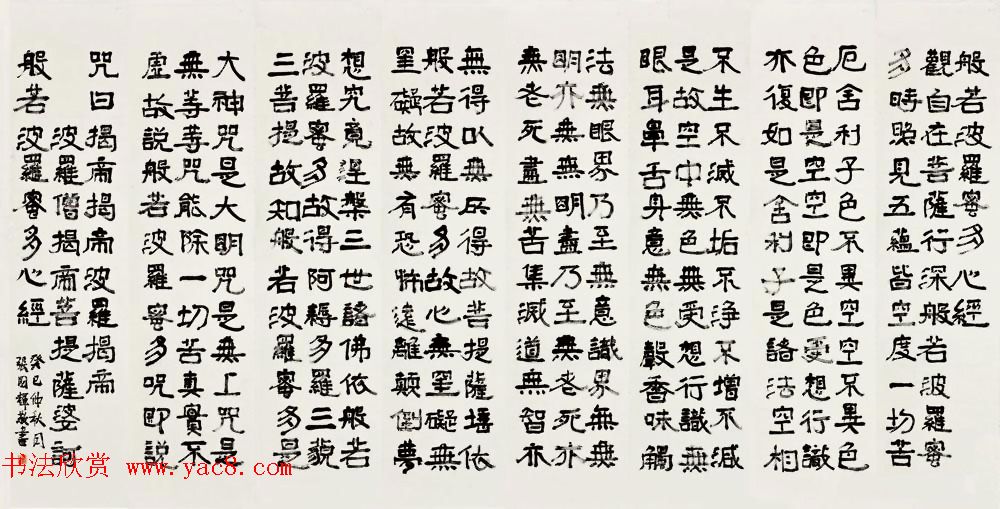 般若波羅蜜多心經
觀自在菩薩行深般若波羅蜜
多時照見五蘊皆空度一切苦
厄舍利子色不異空空不異色
色即是空空即是色受想行識
亦復如是舍利子是諸法空相
不生不滅不垢不淨不增不減
是故空中無色無受想行識無
眼耳鼻舌身意無色聲香味觸
法無眼界乃至無意識界無無
明亦無無明盡乃至無老死亦
無老死盡無苦集滅道無智亦
無得以無所得故菩提薩埵依
般若波羅蜜多故心無罣礙無
罣礙故無有恐怖遠離顛倒夢
想究竟涅槃三世諸佛依般若
波羅蜜多故得阿耨多羅三藐
三菩提故知般若波羅蜜多是
大神咒是大明咒是無上咒是
無等等咒能除一切苦真實不
虛故説般若波羅蜜多咒即説
咒曰揭帝揭帝波羅揭帝
波羅僧揭帝菩提薩婆訶
般若波羅蜜多心經
癸巳仲秋月
书法欣赏 www.yac8.com